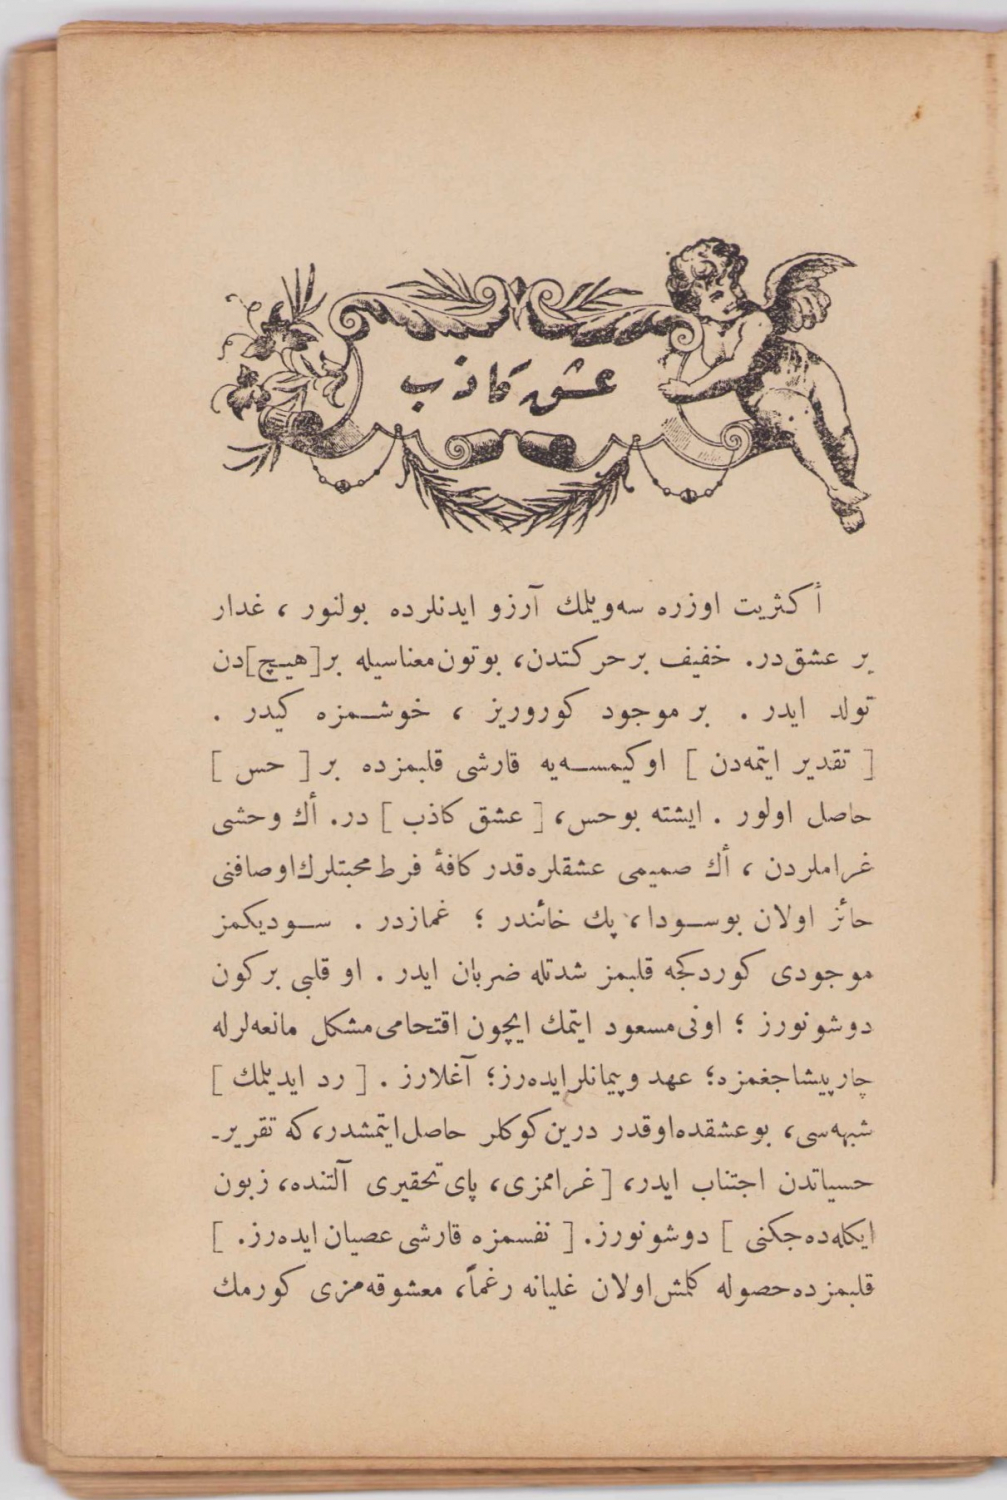 عشق كاذب
أكثريت اوزره سه‌ويلمك آرزو ايدنلرده بولنور ، غدار
بر عشق‌در. خفيف بر حركتدن، بوتون معناسيله بر [هيچ] دن
تولد ايدر . بر موجود كوروريز ، خوشمزه كيدر .
[ تقدير ايتمه‌دن ] او كيمسه‌يه قارشى قلبمزده بر [ حس ]
حاصل اولور . ايشته بوحس، [ عشق كاذب ] در. أك وحشى
غراملردن ، أك صميمى عشقلره‌قدر كافهٔ فرط محبتلرك اوصافنى
حائز اولان بوسودا، پك خائندر ؛ غمازدر . سوديكمز
موجودى كوردكجه قلبمز شدتله ضربان ايدر . او قلبى بركون
دوشونورز ؛ اونى مسعود ايتمك ايچون اقتحامى مشكل مانعه‌لرله
چارپيشاجغمزه؛ عهد و پيمانلر ايده‌رز؛ آغلارز . [ رد ايديلمك ]
شبهه‌سى، بوعشقده اوقدر درين كوكلر حاصل ايتمشدر، كه تقرير-
حسياتدن اجتناب ايدر، [ غراممزى، پاى تحقيرى آلتنده، زبون
ايكله‌ده‌جكنى ] دوشونورز. [ نفسمزه قارشى عصيان ايده‌رز. ]
قلبمزده حصوله كلمش اولان غليانه رغماً، معشوقه‌مزى كورمك